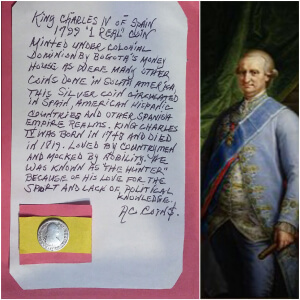 KING CHARLES IV OF SPAIN
1799 "1 REAL" COIN
MINTED UNDER COLONIAL
DOMINION BY BOGOTA'S MONEY
HOUSE AS WERE MANY OTHER
COINS DONE IN SOUTH AMERICA,
THIS SILVER COIN CIRCULATED
IN SPAIN, AMERICAN HISPANIC
COUNTRIES AND OTHER SPANISH
EMPIRE REALMS. KING CHARLES
IV WAS BORN IN 1748 AND DIED
IN 1819. LOVED BY COUNTRYMEN
AND MOCKED BY NOBILITY. HE
WAS KNOWN AS "THE HUNTER"
BECAUSE OF HIS LOVE FOR THE
SPORT AND LACK OF POLITICAL
KNOWLEDGE.
RC COIN$.